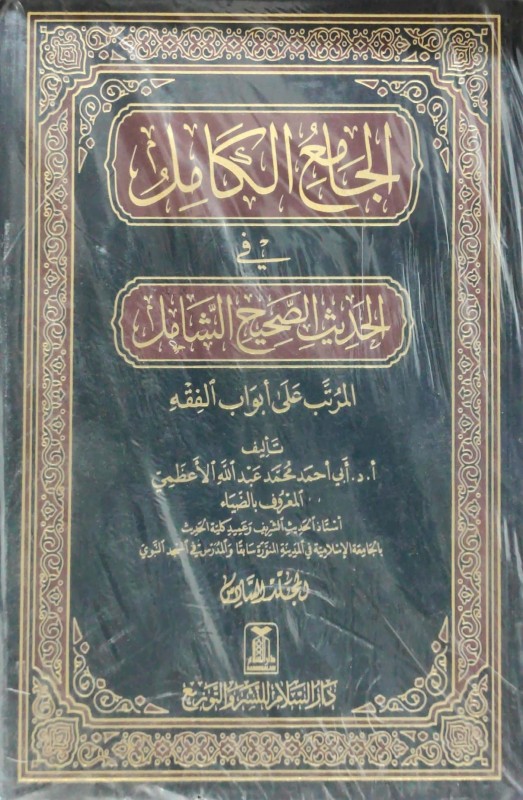 الجَامِعُ الكَامِلُ
في
الحَدِيثِ الصَّحِيحِ الشَّامِلِ
المُرتَّب عَلى أبوَاب الفِقْهِ
تَأليف
أ. د. أبي أحمد محمّد عبد الله الأعظمي
المَعْرُوف بالضيَاء
أستاذ الحديث الشريف وعميد كلية الحديث
بالجامعة الإسلامية في المدينة المنوّرة سَابقًا والمدرّس في المسجد النّبوي
المجلد السادس
دار السلام للنشر والتوزيع